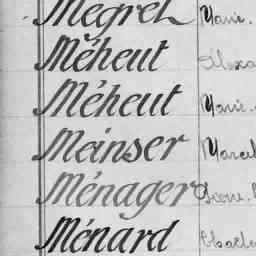 Mégret Marie.
Méheut Alexa
Méheut Marie.
Meinser Marcel
Ménager
Ménard Charles